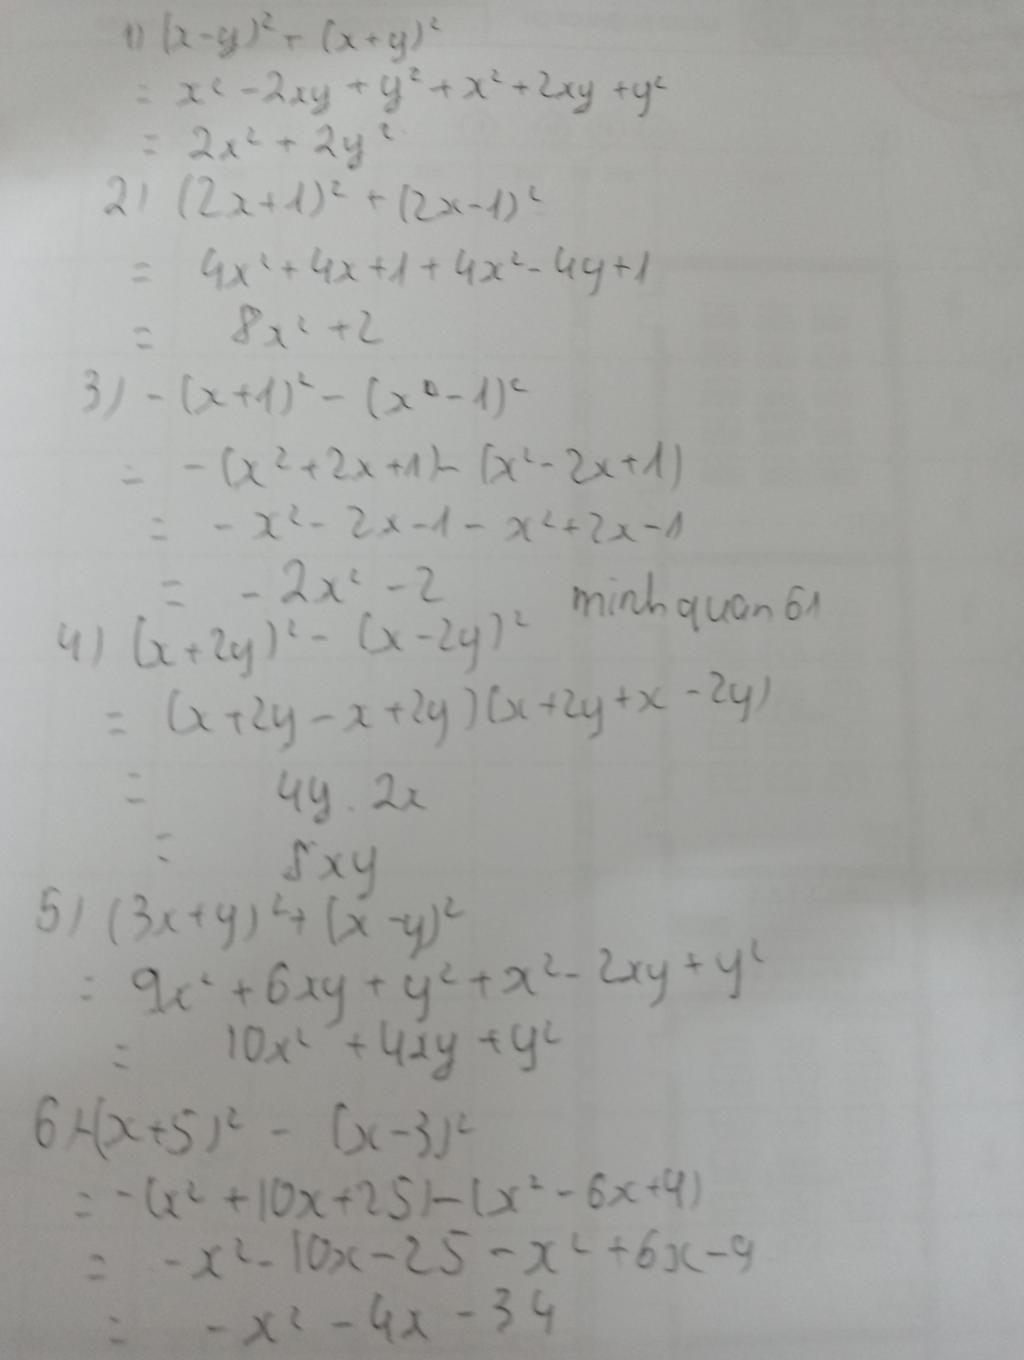 1) (x-y)² + (x+y)²
= x² - 2xy + y² + x² + 2xy + y²
= 2x² + 2y²
2) (2x+1)² + (2x-1)²
= 4x² + 4x + 1 + 4x² - 4y + 1
= 8x² + 2
3) - (x+1)² - (x - 1)²
= - (x² + 2x + 1) - (x² - 2x + 1)
= - x² - 2x - 1 - x² + 2x - 1
= - 2x² - 2
minhquan61
4) (x + 2y)² - (x - 2y)²
= (x + 2y - x + 2y) (x + 2y + x - 2y)
= 4y . 2x
= 8xy
5) (3x + y)² + (x - y)²
= 9x² + 6xy + y² + x² - 2xy + y²
= 10x² + 4xy + y²
6) -(x+5)² - (x-3)²
= -(x² + 10x + 25) - (x² - 6x + 9)
= - x² - 10x - 25 - x² + 6x - 9
= - x² - 4x - 34